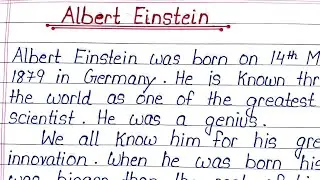 Albert Einstein
Albert Einstein was born on 14th M
1879 in Germany. He is known thr
the world as one of the greatest
scientist. He was a genius.
We all know him for his gre
innovation. When he was born his
was bigger than the